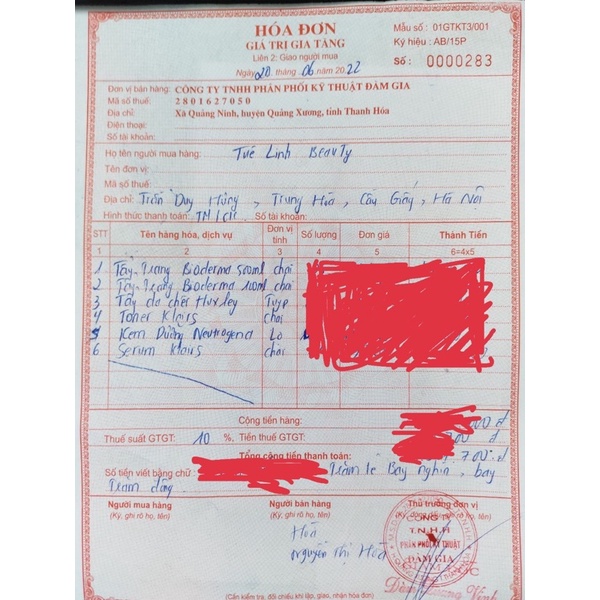 HÓA ĐƠN
GIÁ TRỊ GIA TĂNG
Liên 2: Giao người mua
Ngày 20 tháng 06 năm 2022
Mẫu số : 01GTKT3/001
Ký hiệu : AB/15P
Số : 0000283
Đơn vị bán hàng: CÔNG TY TNHH PHÂN PHỐI KỸ THUẬT ĐÀM GIA
Mã số thuế: 2801627050
Địa chỉ: Xã Quảng Ninh, huyện Quảng Xương, tỉnh Thanh Hóa
Điện thoại:
Số tài khoản:
Họ tên người mua hàng: Tuê Linh Beauty
Tên đơn vị:
Mã số thuế:
Địa chỉ: Trần Duy Hưng, Trung Hoà, Cầu Giấy, Hà Nội
Hình thức thanh toán: TM/CK Số tài khoản:
STT Tên hàng hóa, dịch vụ Đơn vị tính Số lượng Đơn giá Thành Tiền
1 2 3 4 5 6=4x5
1 Tẩy trang Bioderma 500ml chai
2 Tẩy trang Bioderma 100ml chai
3 Tẩy da chết Huxley Tuýp
4 Toner Klairs chai
5 Kem Dưỡng Neutrogena Lọ
6 Serum Klairs chai
Cộng tiền hàng: 000 đ
Thuế suất GTGT: 10 %, Tiền thuế GTGT: 00 đ
Tổng cộng tiền thanh toán: 700 đ
Số tiền viết bằng chữ: Trăm lẻ Bảy nghìn, bảy
trăm đồng
Người mua hàng
(Ký, ghi rõ họ, tên)
Người bán hàng
(Ký, ghi rõ họ, tên)
Thủ trưởng đơn vị
Hoà
Nguyễn Thị Hoà
CÔNG TY
T.N.H.H
PHÂN PHỐI KỸ THUẬT
ĐÀM GIA
(Cần kiểm tra, đối chiếu khi lập, giao, nhận hóa đơn)